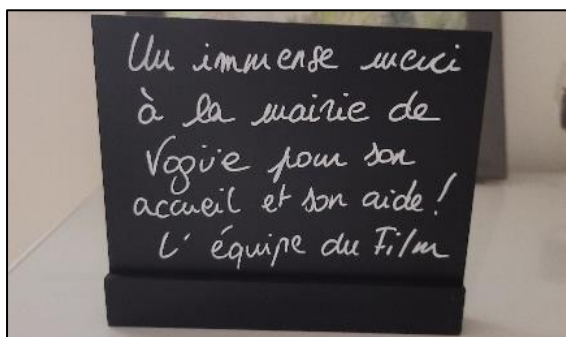 Un immense merci
à la mairie de
Vogüe pour son
accueil et son aide !
L'équipe du Film